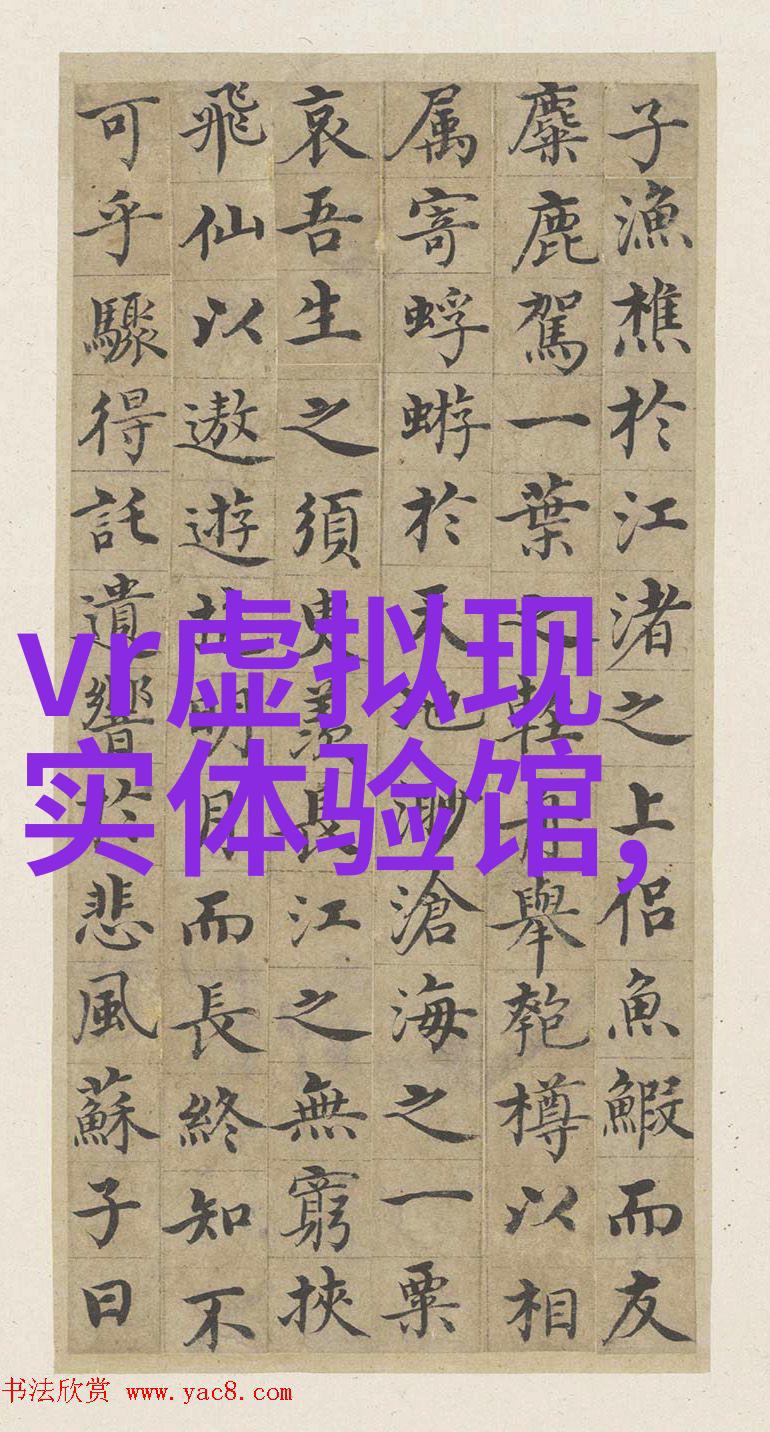 子漁樵於江渚之上侶魚鰕而友
麋鹿駕一葉之輕舟舉匏樽以相
属寄蜉蝣於天地渺滄海之一粟
哀吾生之須臾羨長江之無窮挾
飛仙以遨遊抱明月而長終知不
可乎驟得託遺響於悲風蘇子曰
vr虚拟现
实体验馆,
书法欣赏 www.yac8.com